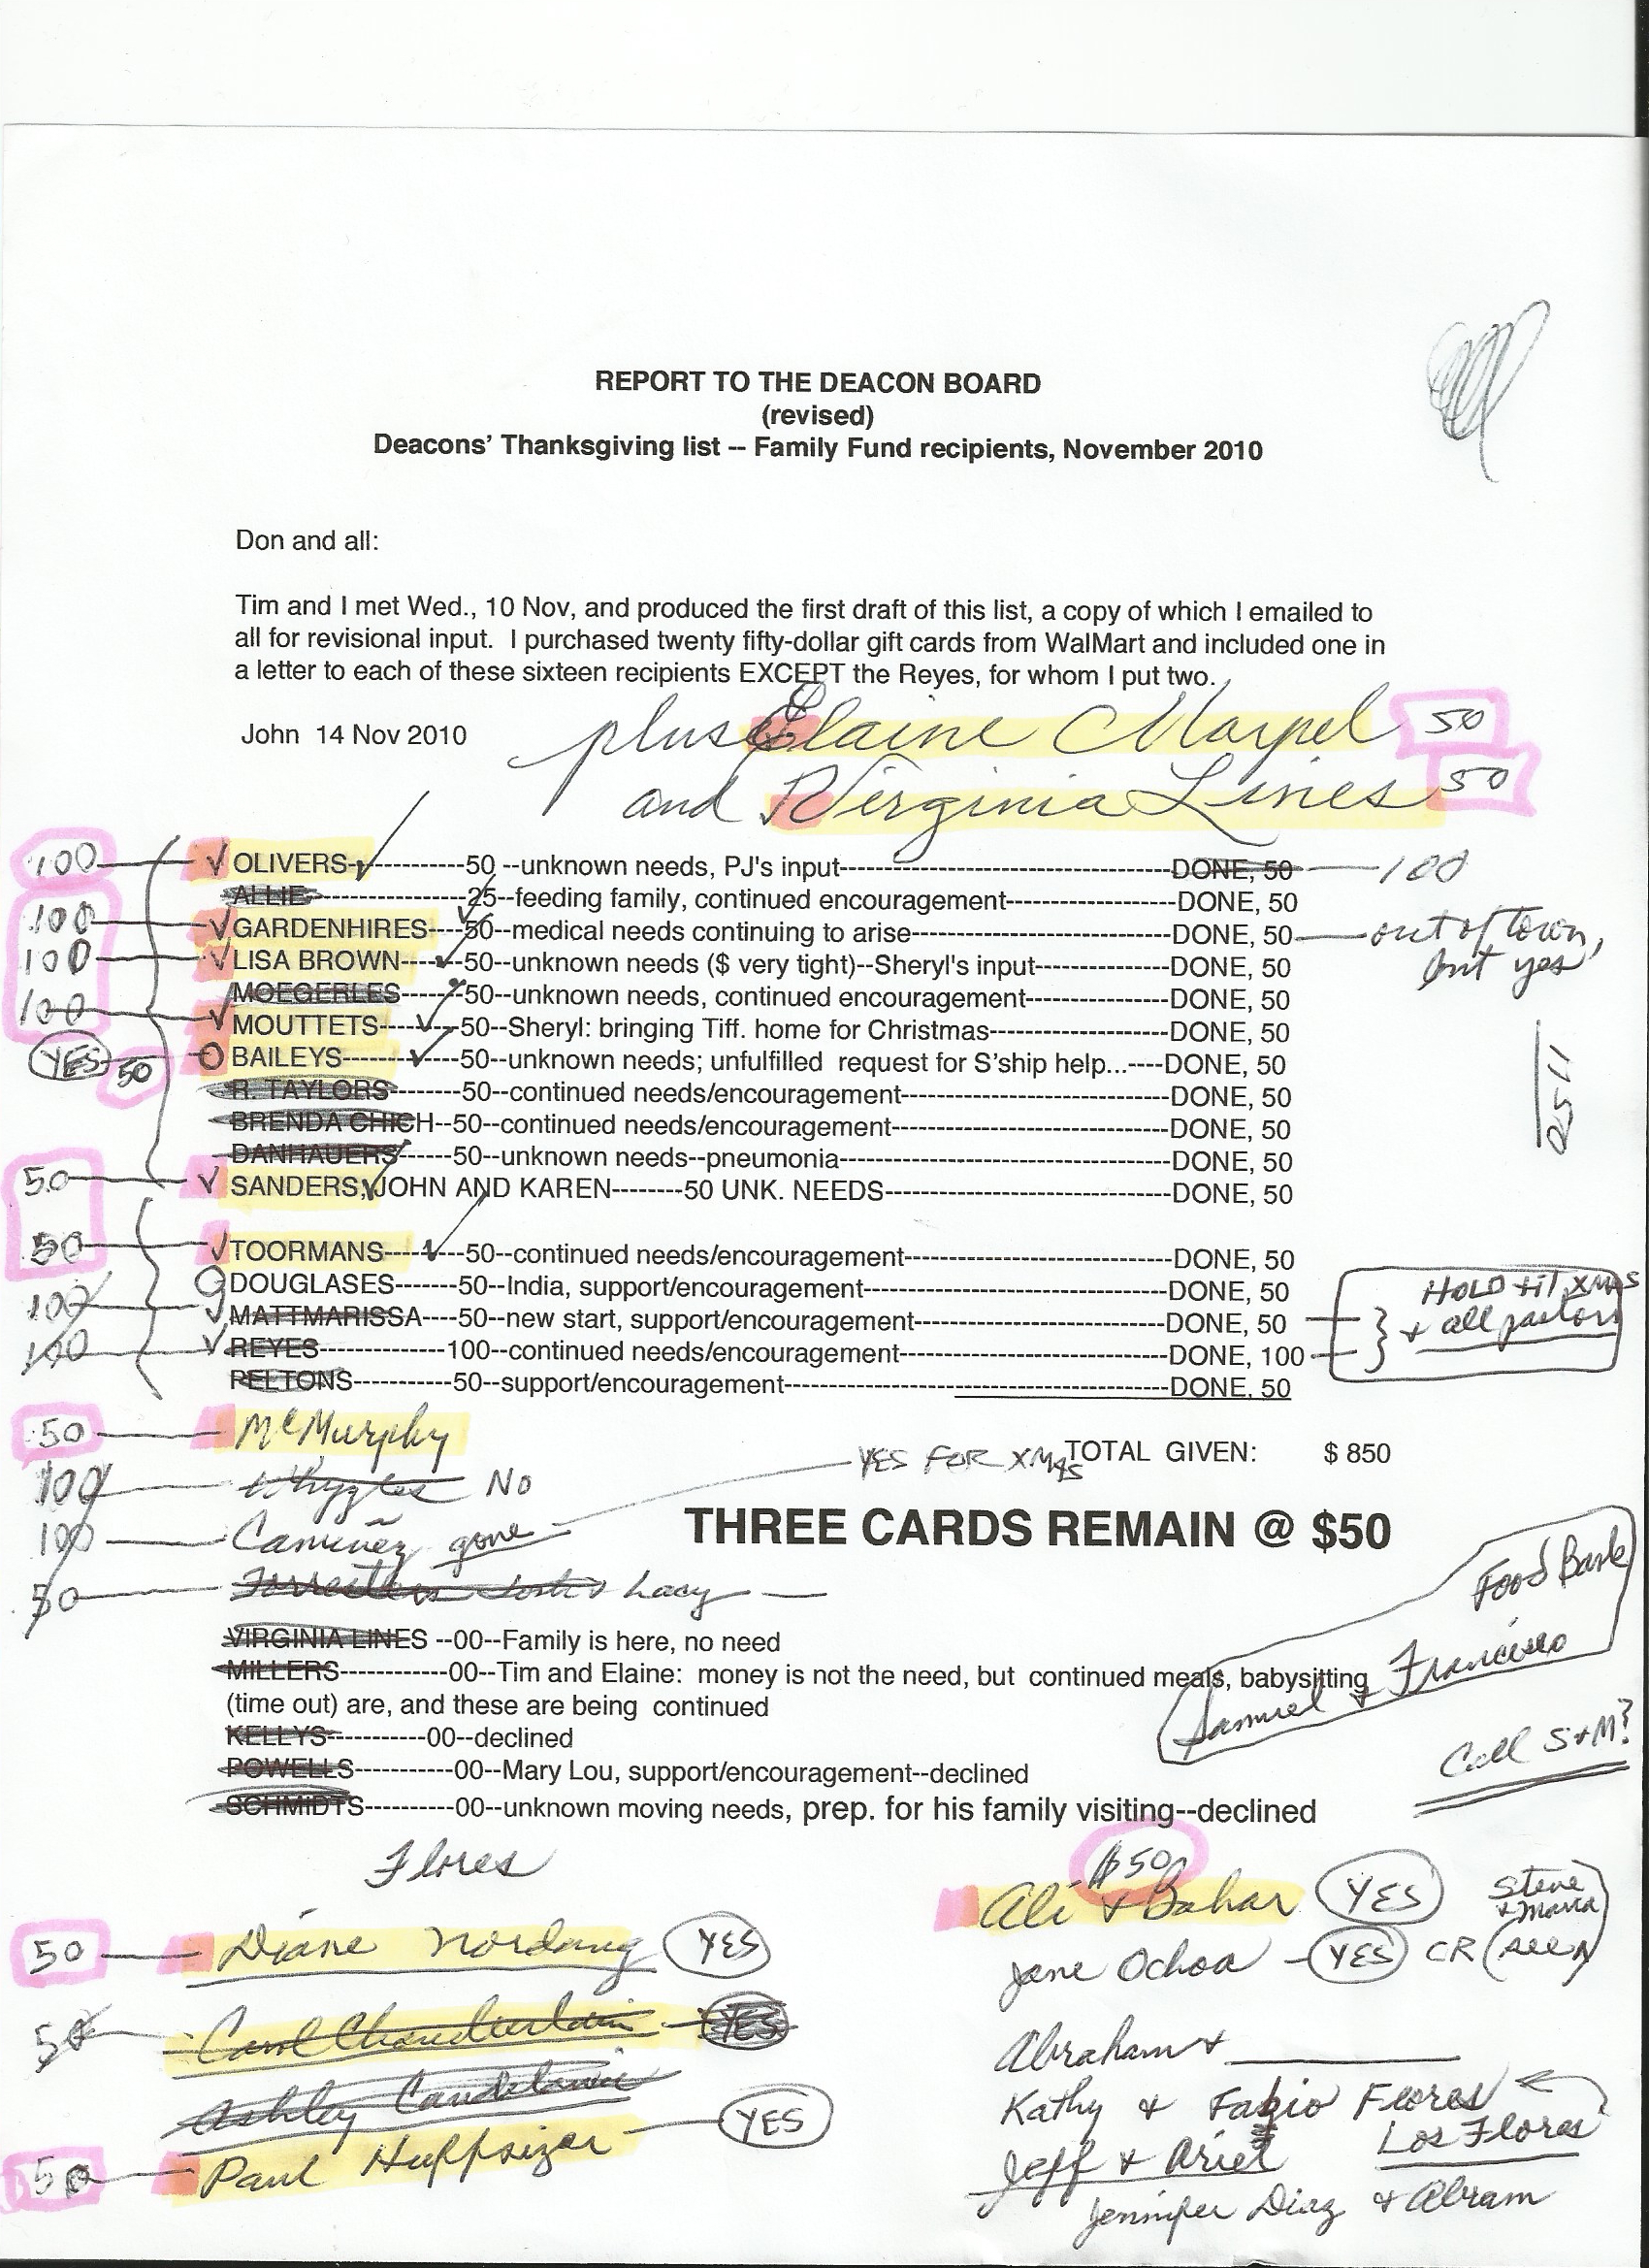 REPORT TO THE DEACON BOARD
(revised)
Deacons' Thanksgiving list -- Family Fund recipients, November 2010
Don and all:
Tim and I met Wed., 10 Nov, and produced the first draft of this list, a copy of which I emailed to
all for revisional input. I purchased twenty fifty-dollar gift cards from WalMart and included one in
a letter to each of these sixteen recipients EXCEPT the Reyes, for whom I put two.
John 14 Nov 2010
plus Elaine Marpel 50
and Virginia Lines 50
100 OLIVERS-----------50 --unknown needs, PJ's input-----DONE, 50 100
ALLIE-----------------25--feeding family, continued encouragement-----DONE, 50
100 GARDENHIRES----50--medical needs continuing to arise-----DONE, 50 out of town,
but yes
100 LISA BROWN-------50--unknown needs ($ very tight)--Sheryl's input-----DONE, 50
MOEGERLES-------50--unknown needs, continued encouragement-----DONE, 50
100 MOUTTETS--------50--Sheryl: bringing Tiff. home for Christmas-----DONE, 50
YES 50 BAILEYS------------50--unknown needs; unfulfilled request for S'ship help...----DONE, 50
R. TAYLORS--------50--continued needs/encouragement-----DONE, 50
BRENDA CHICH--50--continued needs/encouragement-----DONE, 50
DANHAUERS------50--unknown needs--pneumonia-----DONE, 50
50 SANDERS, JOHN AND KAREN--------50 UNK. NEEDS-----DONE, 50
2511
50 TOORMANS--------50--continued needs/encouragement-----DONE, 50
DOUGLASES-------50--India, support/encouragement-----DONE, 50
100 MATTMARISSA----50--new start, support/encouragement-----DONE, 50
100 REYES--------------100--continued needs/encouragement-----DONE, 100
HOLD til XMAS
+ all pastors
PELTONS-----------50--support/encouragement-----DONE, 50
50 McMurphy
TOTAL GIVEN: $ 850
100 No
YES FOR XMAS
THREE CARDS REMAIN @ $50
100 gone
50 Lacy
VIRGINIA LINES --00--Family is here, no need
MILLERS------------00--Tim and Elaine: money is not the need, but continued meals, babysitting
(time out) are, and these are being continued
KELLYS-----------00--declined
POWELLS-----------00--Mary Lou, support/encouragement--declined
SCHMIDTS----------00--unknown moving needs, prep. for his family visiting--declined
Food Bank
Samuel + Francisco
Call S+M?
Flores
50 Diane Nordang YES
50 Carol Chamberlain YES
Ashley
50 Paul Huffsizer YES
$50
Ali + Bahar YES
Steve
+ Maria
Jane Ochoa - YES CR
Abraham +
Kathy & Fabio Flores
Los Flores
Jeff & Ariel
Jennifer Diaz & Abram